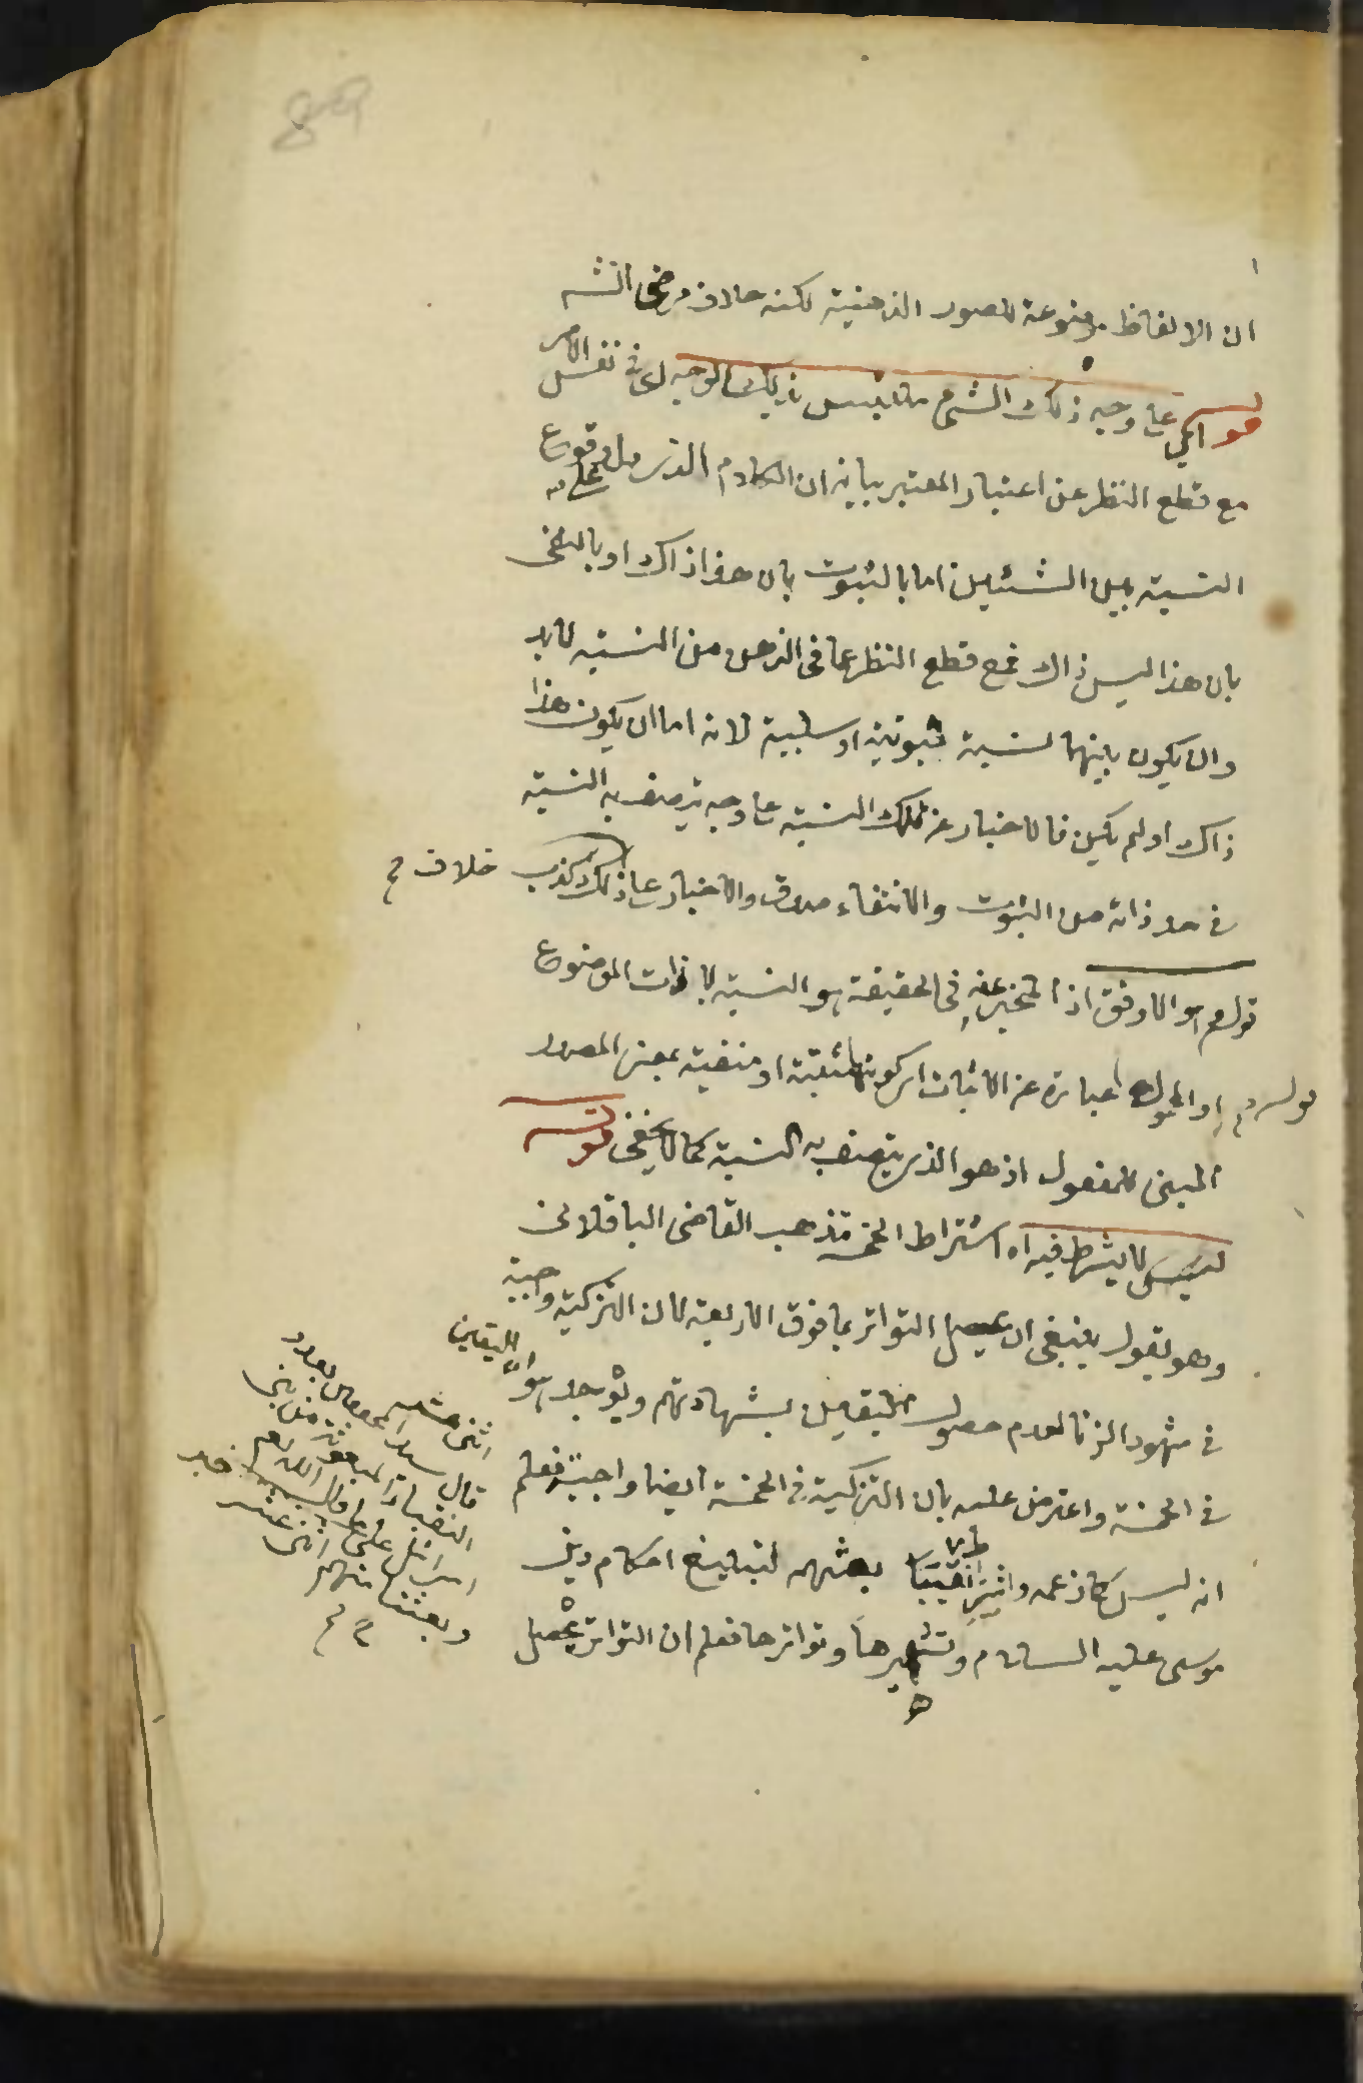 ان الالفاظ موضوعة للصور الذهنية لكنه خلاف مرضى الشـ
قوله اي على وجه ذلك الشئ متلبس بذلك الوجه اي في نفس الامر
مع قطع النظر عن اعتبار المعتبر بيانه ان الكلام الذي دل على وقوع
النسبة بين الشيئين اما بالثبوت بان هذا ذاك او بالنفى
بان هذا ليس ذاك فمع قطع النظر عما فى الذهن من النسبة لا بد
وان يكون بينهما نسبة ثبوتية او سلبية لانه اما ان يكون هذا
ذاك او لم يكن فالاخبار عن تلك النسبة على وجه يتصف به النسبة
فى حد ذاته من الثبوت والانتفاء صدق والاخبار على خلاف ذلك كذب
قوله هو الاوفق اذ المخبر عنه فى الحقيقة هو النسبة لا ذات الموضوع
او المحمول قوله عبارة عن الاثبات اى كونها مثبتة او منفية بمعنى المصدر
المبنى للمفعول اذ هو الذى يتصف به النسبة كما لا يخفى قوله
ليس لا يشترط فيه اه اشتراط الخمسة مذهب القاضى الباقلانى
وهو يقول ينبغى ان يحصل التواتر بما فوق الاربعة لان التزكية واجبة
فى شهود الزنا لعدم حصول اليقين بشهادتهم ويوجد اليقين
فى الخمسة واعترض عليه بان التزكية فى الخمسة ايضا واجبة فعلم
انه ليس كما زعمه واثنى نقيبا بعثهم لتبليغ احكام دين
موسى عليه السلام وتشهيرها وتواترها فعلم ان التواتر يحصل
اثنى عشر بعدد
قال
النقباء المبعوث من بنى
اسرائيل على ما قال الله تعالى
وبعثنا منهم اثنى عشر